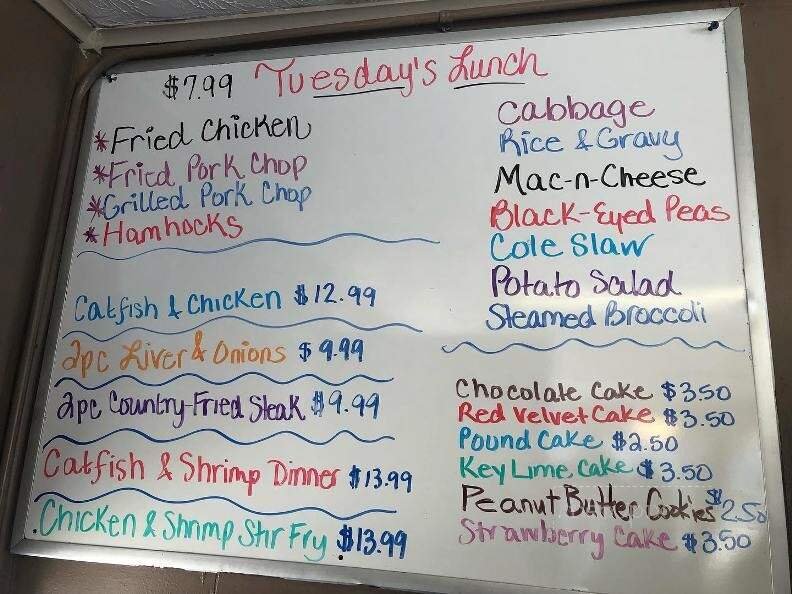 $7.99 Tuesday's Lunch
*Fried Chicken
*Fried Pork Chop
*Grilled Pork Chop
*Hamhocks
Catfish & Chicken $12.99
2pc Liver & Onions $9.99
2pc Country-Fried Steak $9.99
Catfish & Shrimp Dinner $13.99
Chicken & Shrimp Stir Fry $13.99
Cabbage
Rice & Gravy
Mac-n-Cheese
Black-Eyed Peas
Cole Slaw
Potato Salad
Steamed Broccoli
Chocolate Cake $3.50
Red Velvet Cake $3.50
Pound Cake $2.50
Key Lime Cake $3.50
Peanut Butter Cookies $2.50
Strawberry Cake $3.50